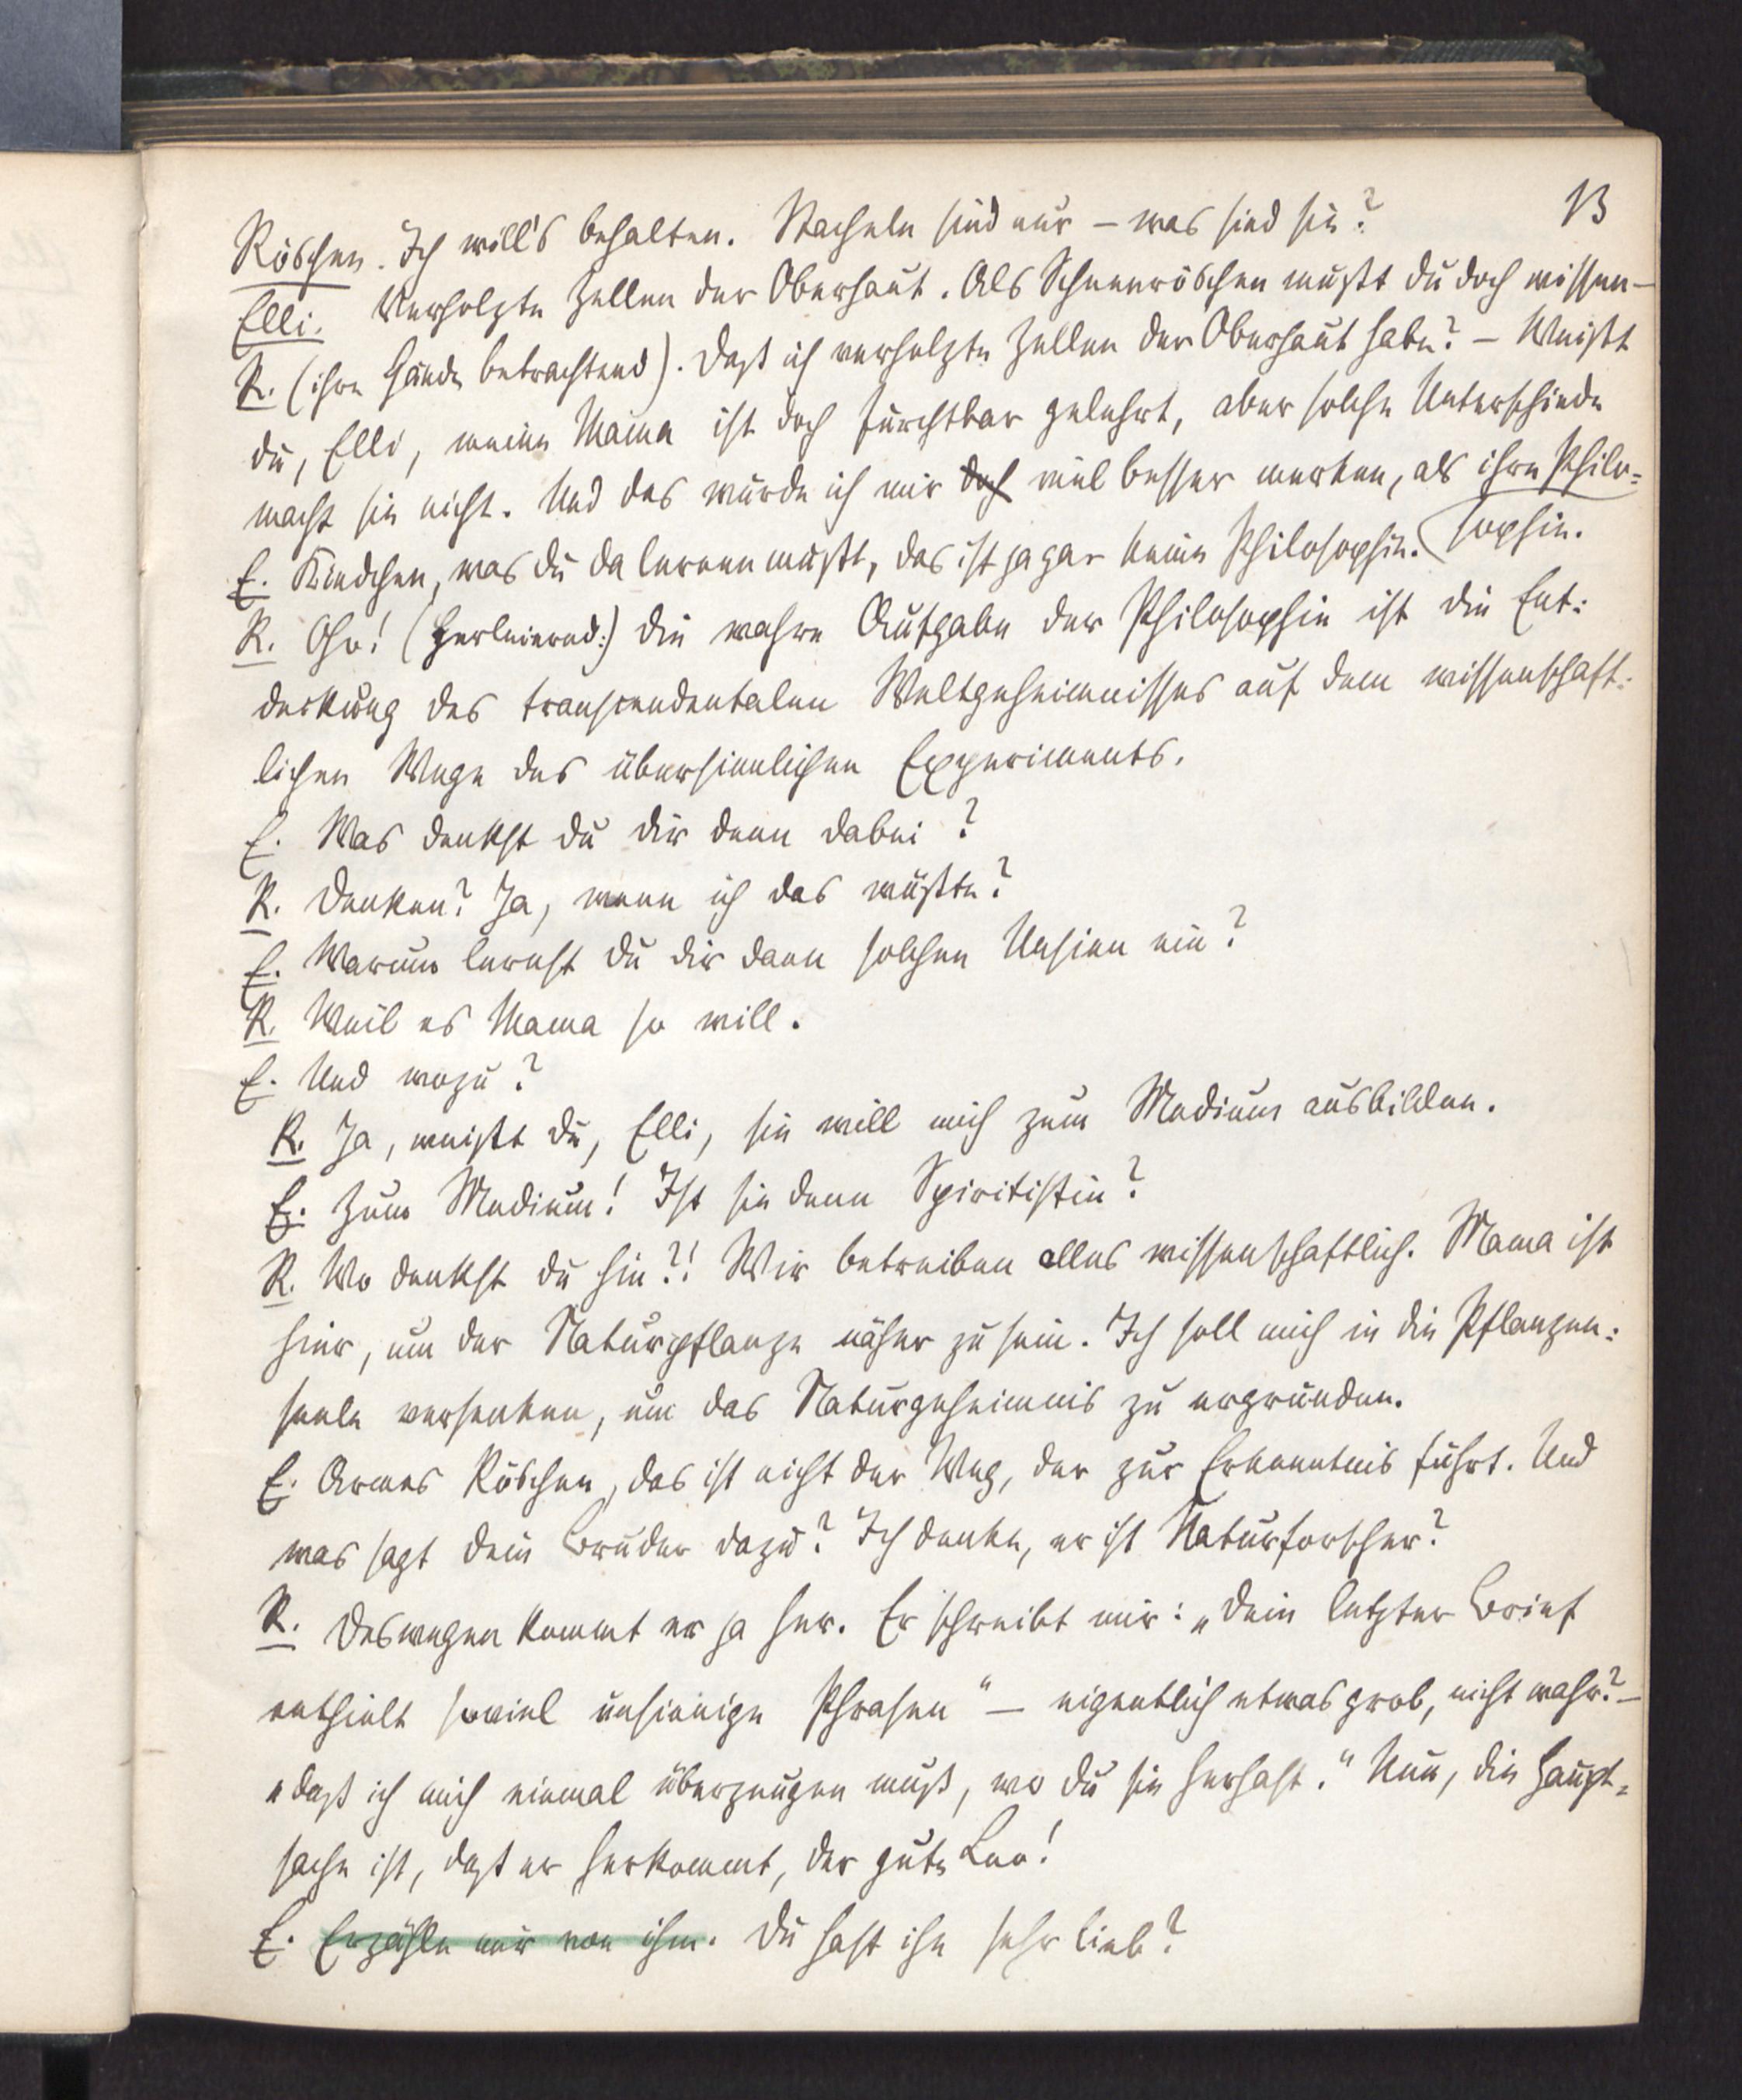 13
Röschen. Ich will's behalten. Stacheln sind nur – was sind sie?
Elli. Verholzte Zellen der Oberhaut. Als Schneeröschen mußt du doch wissen –
R. (ihre Hände betrachtend). Daß ich verholzte Zellen der Oberhaut habe? – Weißt
du, Elli, meine Mama ist doch furchtbar gelehrt, aber solche Unterschiede
macht sie nicht. Und das würde ich mir doch viel besser merken, als ihre Philo-
sophie.
E. Kindchen, was du da lernen mußt, das ist ja gar keine Philosophie.
R. Oho! (Herleiernd:) Die wahre Aufgabe der Philosophie ist die Ent-
deckung des transcendentalen Weltgeheimnisses auf dem wissenschaft-
lichen Wege des übersinnlichen Experiments.
E. Was denkst du dir denn dabei?
R. Denken? Ja, wenn ich das wüßte?
E. Warum lernst du dir dann solchen Unsinn ein?
R. Weil es Mama so will.
E. Und wozu?
R. Ja, weißt du, Elli, sie will mich zum Medium ausbilden.
E. Zum Medium! Ist sie denn Spiritistin?
R. Wo denkst du hin?! Wir betreiben alles wissenschaftlich. Mama ist
hier, um der Naturpflanze näher zu sein. Ich soll mich in die Pflanzen-
seele versenken, um das Naturgeheimnis zu ergründen.
E. Armes Röschen, das ist nicht der Weg, der zur Erkenntnis führt. Und
was sagt dein Bruder dazu? Ich denke, er ist Naturforscher?
R. Deswegen kommt er ja her. Er schreibt mir: „Dein letzter Brief
enthielt soviel unsinnige Phrasen" – eigentlich etwas grob, nicht wahr? –
„daß ich mich einmal überzeugen muß, wo du sie herhast." Nun, die Haupt-
sache ist, daß er herkommt, der gute Leo!
E. Erzähle mir von ihm. Du hast ihn sehr lieb?